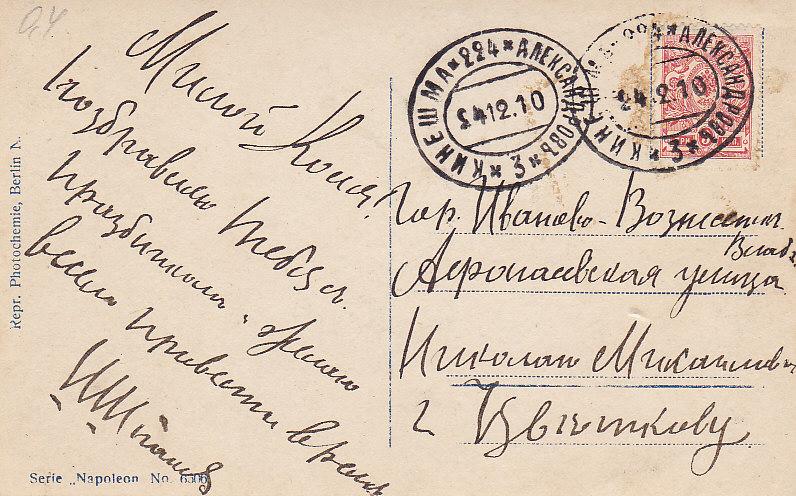 0,4
Милой Коля!
поздравляю тебя с
праздником, желаю
весело провести время
КИНЕШМА * 224 * АЛЕКСАНДРОВЪ * 3 *
24.12.10
КИНЕШМА * 224 * АЛЕКСАНДРОВЪ * 3 *
24.12.10
Гор. Иваново-Вознесенск.
Влад г.
Афонасевская улица
Николаю Михаилович
г Цветкову
Repr. Photochemie, Berlin N.
Serie „Napoleon No. 6506